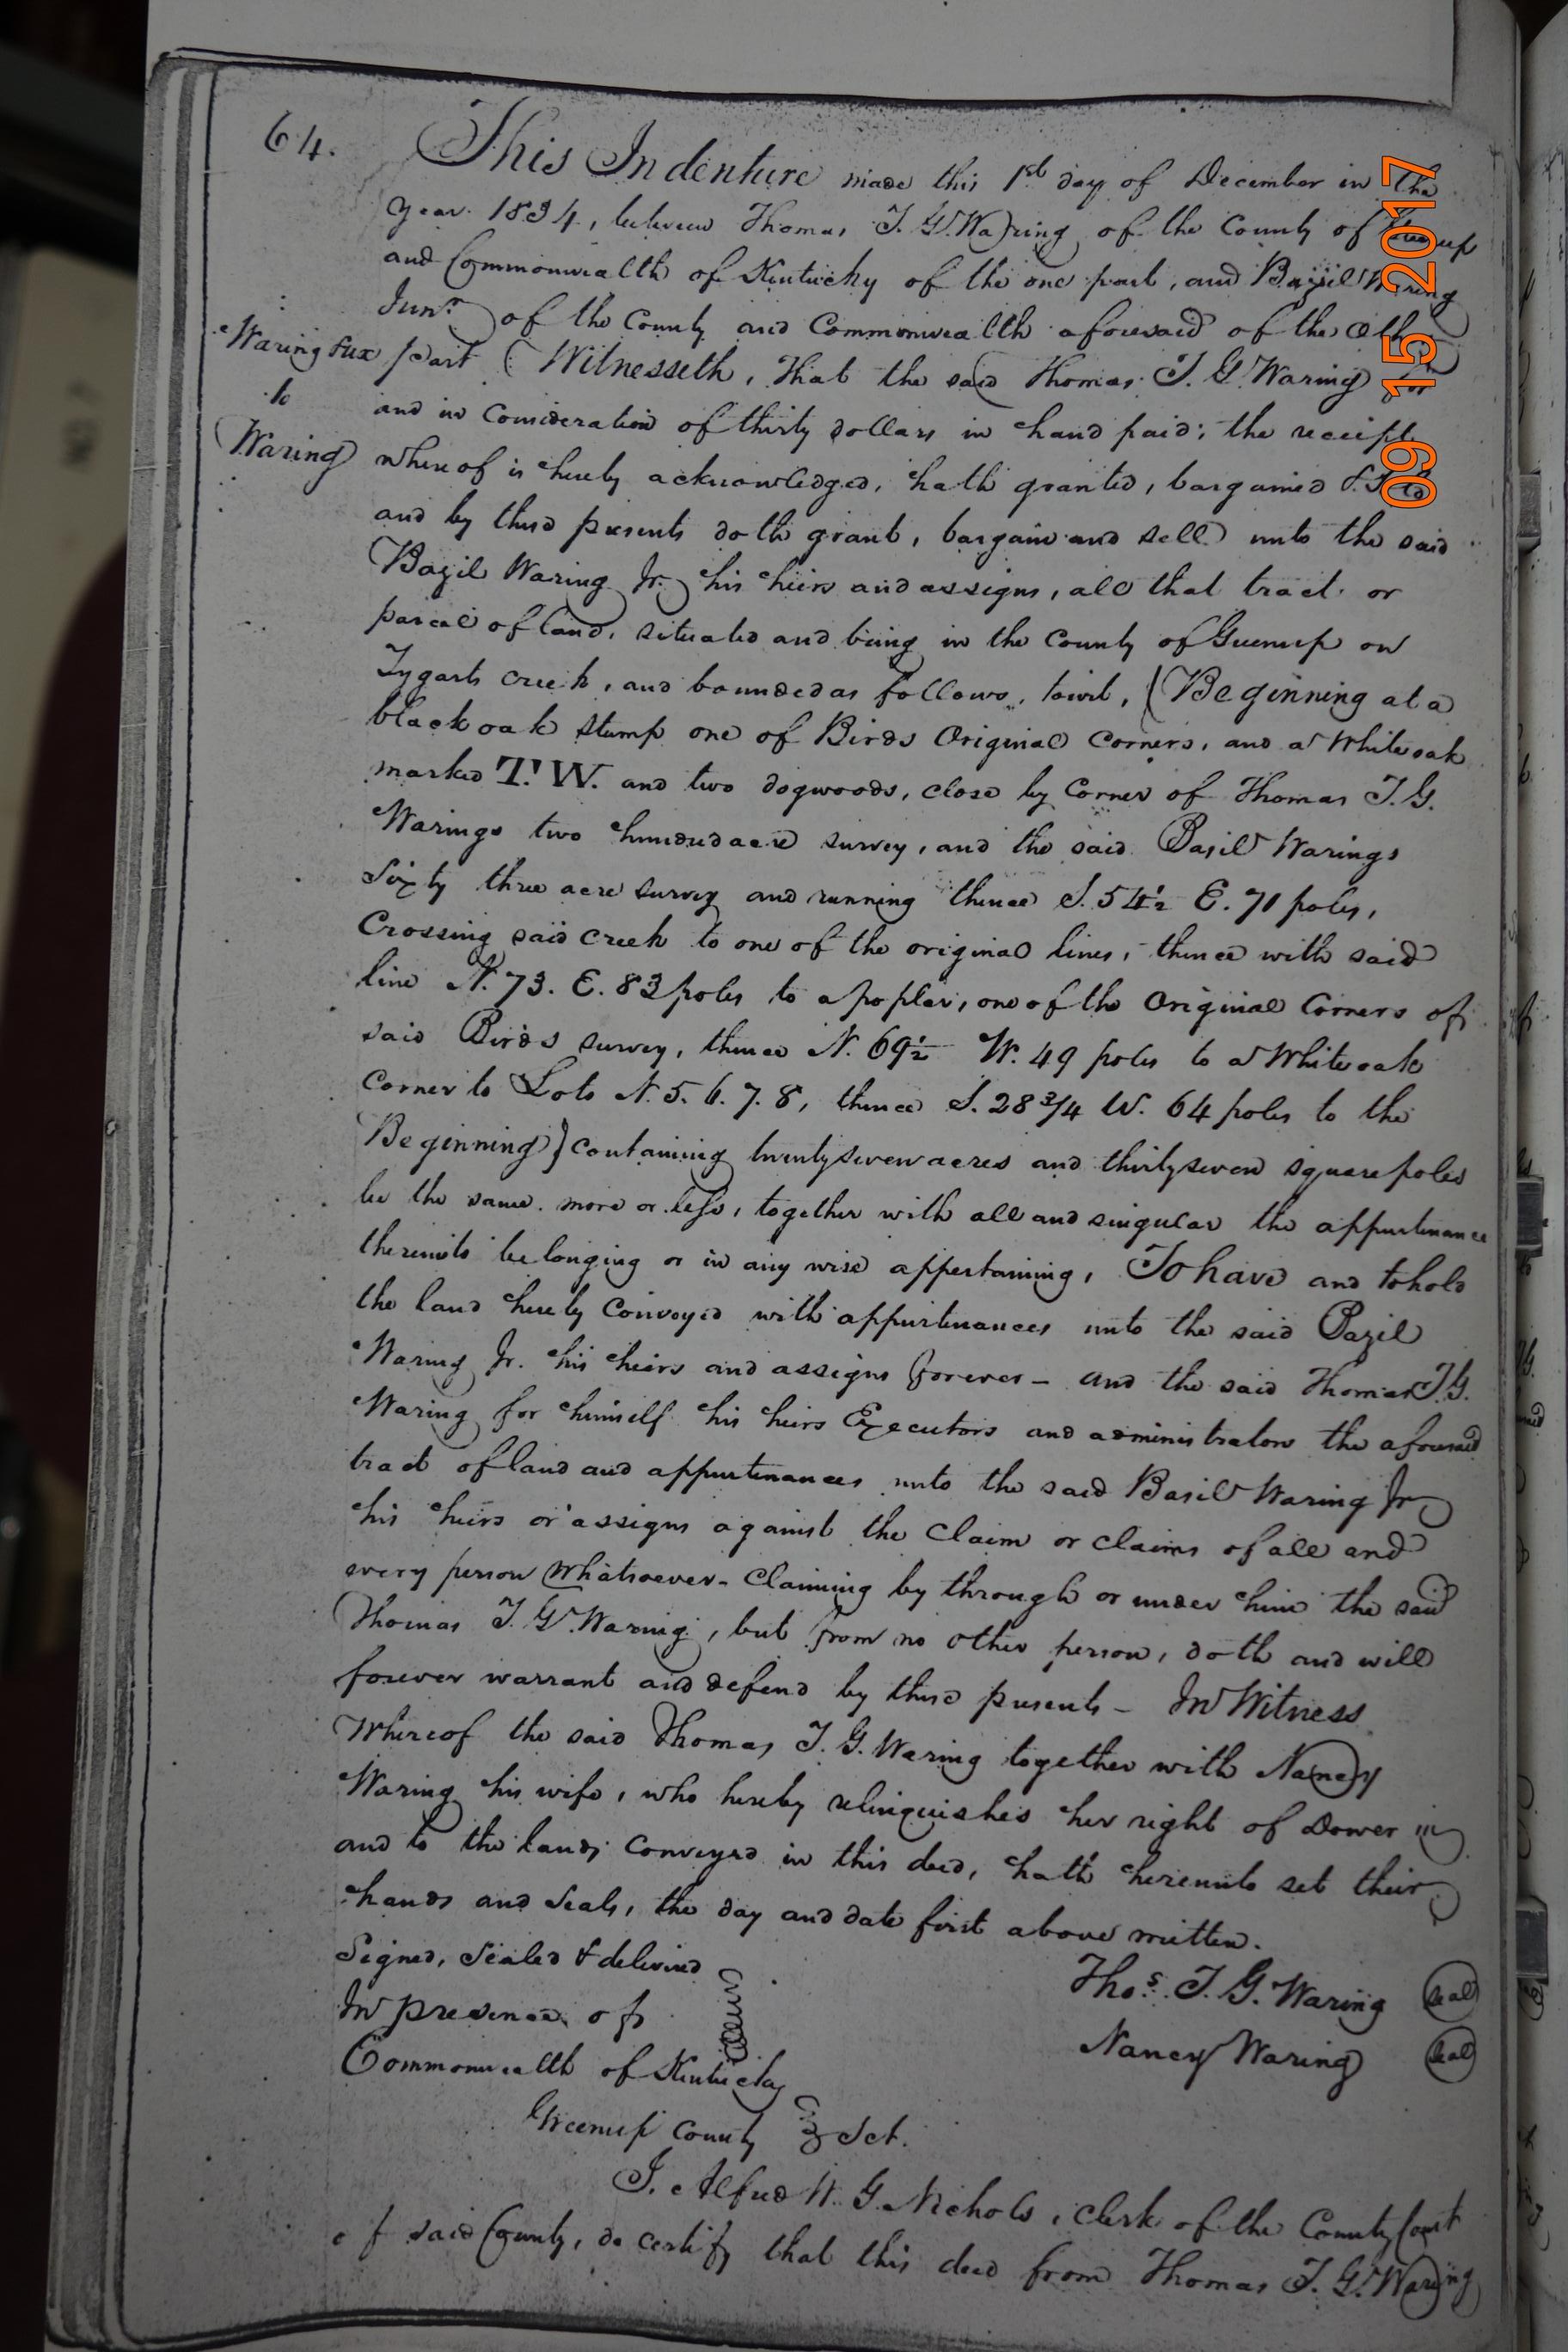 64.
This Indenture made this 1st day of December in the
year 1834, between Thomas T. G. Waring of the County of Greenup
and Commonwealth of Kentucky of the one part, and Bazil Waring
Junr. of the County and Commonwealth aforesaid of the Other
part (Witnesseth, That the said Thomas T. G. Waring for
and in Consideration of thirty dollars in hand paid; the receipt
whereof is hereby acknowledged, hath granted, bargained &
and by these presents doth grant, bargain and sell unto the said
Bazil Waring Jr. his heirs and assigns, all that tract or
parcel of land, situated and being in the County of Greenup on
Tygarts creek, and bounded as follows, towit, (Beginning at a
black oak stump one of Birds Original Corners, and a White oak
marked T. W. and two dogwoods, close by Corner of Thomas T. G.
Warings two hundred acre survey, and the said Basil Warings
Sixty three acre survey and running thence S. 54½ E. 71 poles,
Crossing said creek to one of the original lines, thence with said
line N. 73. E. 83 poles to a poplar, one of the Original Corners of
said Birds survey, thence N. 69½ W. 49 poles to a White oak
Corner to Lots N. 5. 6. 7. 8, thence S. 28 3/4 W. 64 poles to the
Beginning) containing twenty seven acres and thirty seven square poles
be the same more or less, together with all and singular the appurtenance
thereunto belonging or in any wise appertaining, To have and to hold
the land hereby Conveyed with appurtenances unto the said Bazil
Waring Jr. his heirs and assigns forever - and the said Thomas T. G.
Waring for himself his heirs Executors and administrators the aforesaid
tract of land and appurtenances unto the said Basil Waring Jr
his heirs or assigns against the Claim or claims of all and
every person Whatsoever - Claiming by through or under him the said
Thomas T. G. Waring, but from no other person, doth and will
forever warrant and defend by these presents - In Witness
Whereof the said Thomas T. G. Waring together with Nancy
Waring his wife, who hereby relinquishes her right of Dower in
and to the lands conveyed in this deed, hath hereunto set their
hands and Seals, the day and date first above written.
Signed, Sealed & delivered
In presence of
Thos. T. G. Waring (seal)
Nancy Waring (seal)
Commonwealth of Kentucky
Greenup County } Sct.
I. Alfred W. G. Nichols, clerk of the County Court
of said County, do certify that this deed from Thomas T. G. Waring
Waring & ux
to
Waring
09 15 2017